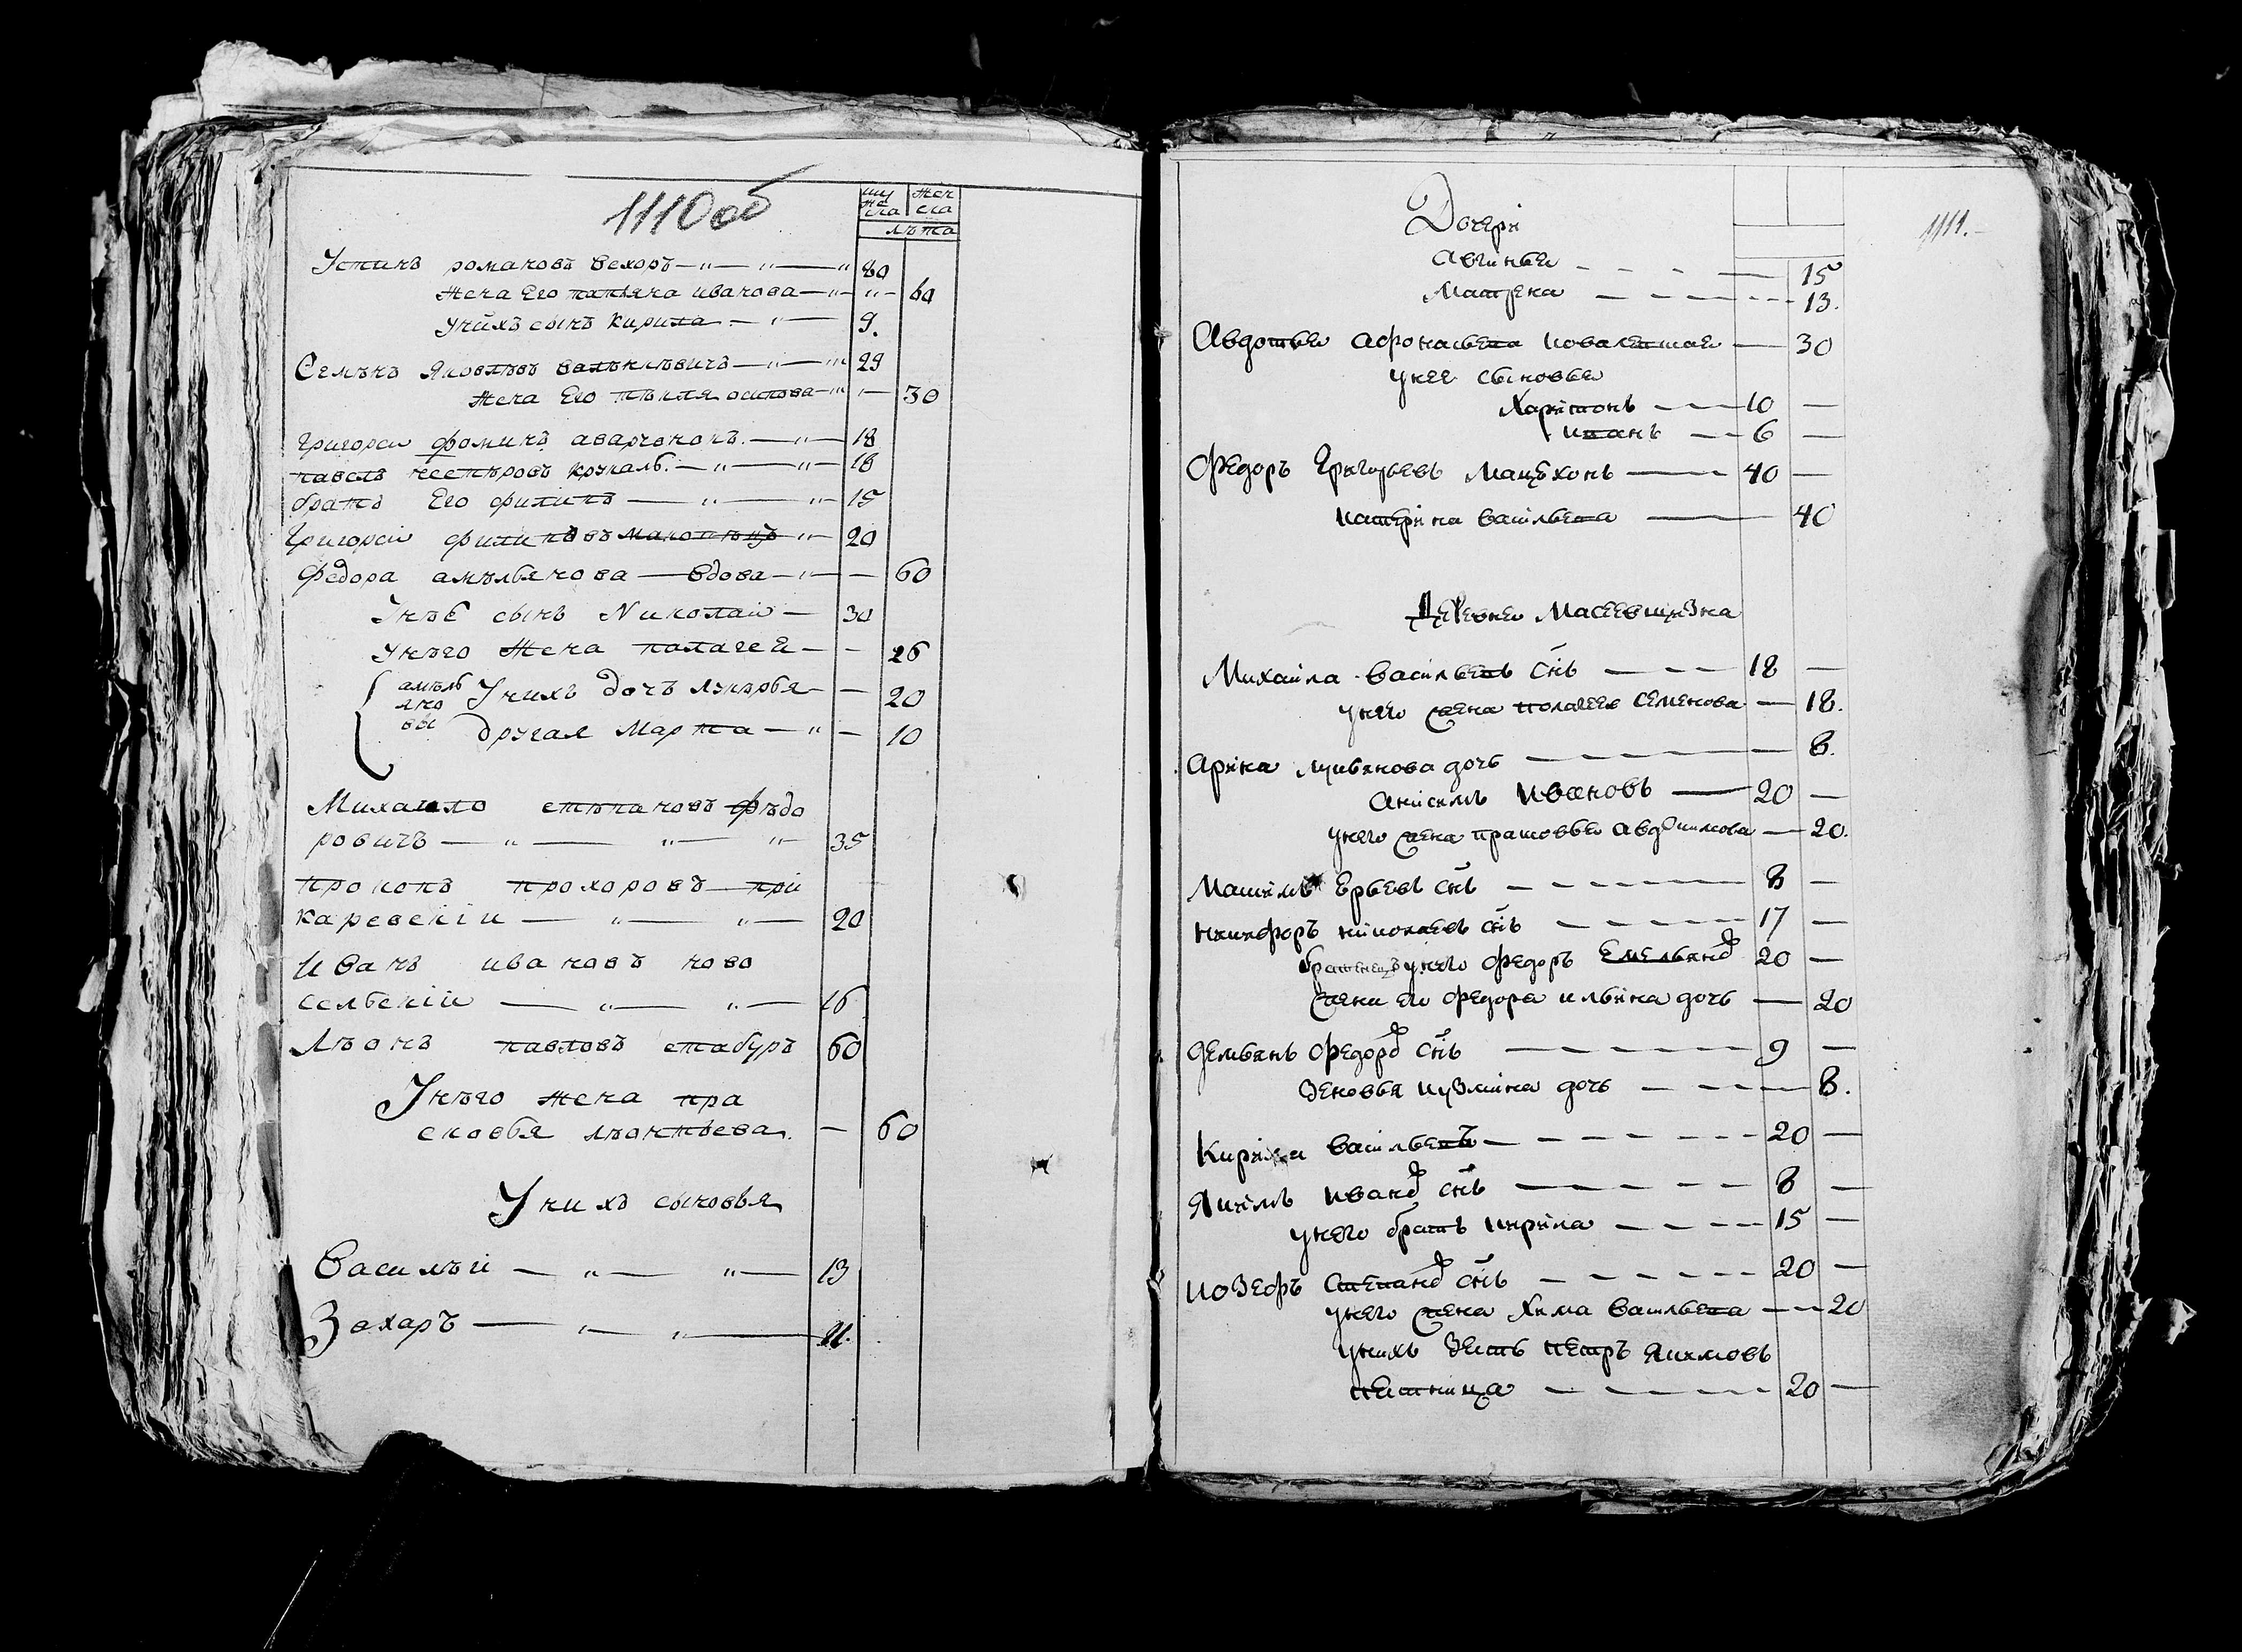 1110 об
му
же
ска
жен
ска
лѣта
Устинъ романовъ вехоръ — " — " — " 80
жена Его татьяна иванова — " — " — 60
Унихъ сынъ кирила — " — 9.
Семѣнъ Яковлѣвъ — " — " 29
жена Его тѣкля осипова — " — 30
григореи фоминъ — " — 18
павелъ нестѣровъ — " — " — 18
братъ Его филипъ — " — " — 15
Григореи филиповъ — " — 20
Федора амѣльянова — вдова — " — — 60
Унѣе сынъ Николаи — 30
Унѣго жена палагея — — 26
амѣль
яно
вы
Унихъ дочъ лукѣрья — — 20
другая Марта — " — 10
Михаило стѣпановъ фѣдо
ровичъ — " — " — " 35
прокопъ прохоровъ прі
каревскіи — " — " — 20
Иванъ ивановъ ново
селбскіи — " — " — 16
Лѣонъ павловъ стабуръ 60
Унѣго жена пра
сковья лѣонтьева. — 60
Унихъ сыновья
Василѣи — " — " — 13
Захаръ — " — " — 11.
1111.
Дочери
Авгинья — — — — 15
Матрена — — — — 13.
Авдотья Афонасьева — 30
унея сыновья
Харитонъ — — — 10 —
иванъ — — 6 —
Федоръ Григорьевъ Мацѣхонъ — — 40 —
катерина васильева — 40
Деревня Масевщизна
Михаила васильевъ снъ — — — 18 —
унего жена полагея семенова — 18.
Арина лукянова дочь — — — — 8.
Анисимъ Ивановъ — 20 —
унего жена прасовья — 20.
Машимъ Ерьевъ снъ — — — — 8 —
никифоръ николаевъ снъ — — — — 17 —
унего федоръ Емельяно 20 —
жена его федора ильина дочь — 20
демьянъ федоро снъ — — — — 9 —
Зеновья кузмина дочь — — — 8.
Кирила васильевъ — — — — — 20 —
Якимъ ивано снъ — — — — — 8 —
унего братъ кирила — — — 15 —
иозефъ степано снъ — — — — — 20 —
унего жена Хима васильева — — 20
унихъ зеть петръ якимовъ
петница — — — — — 20 —